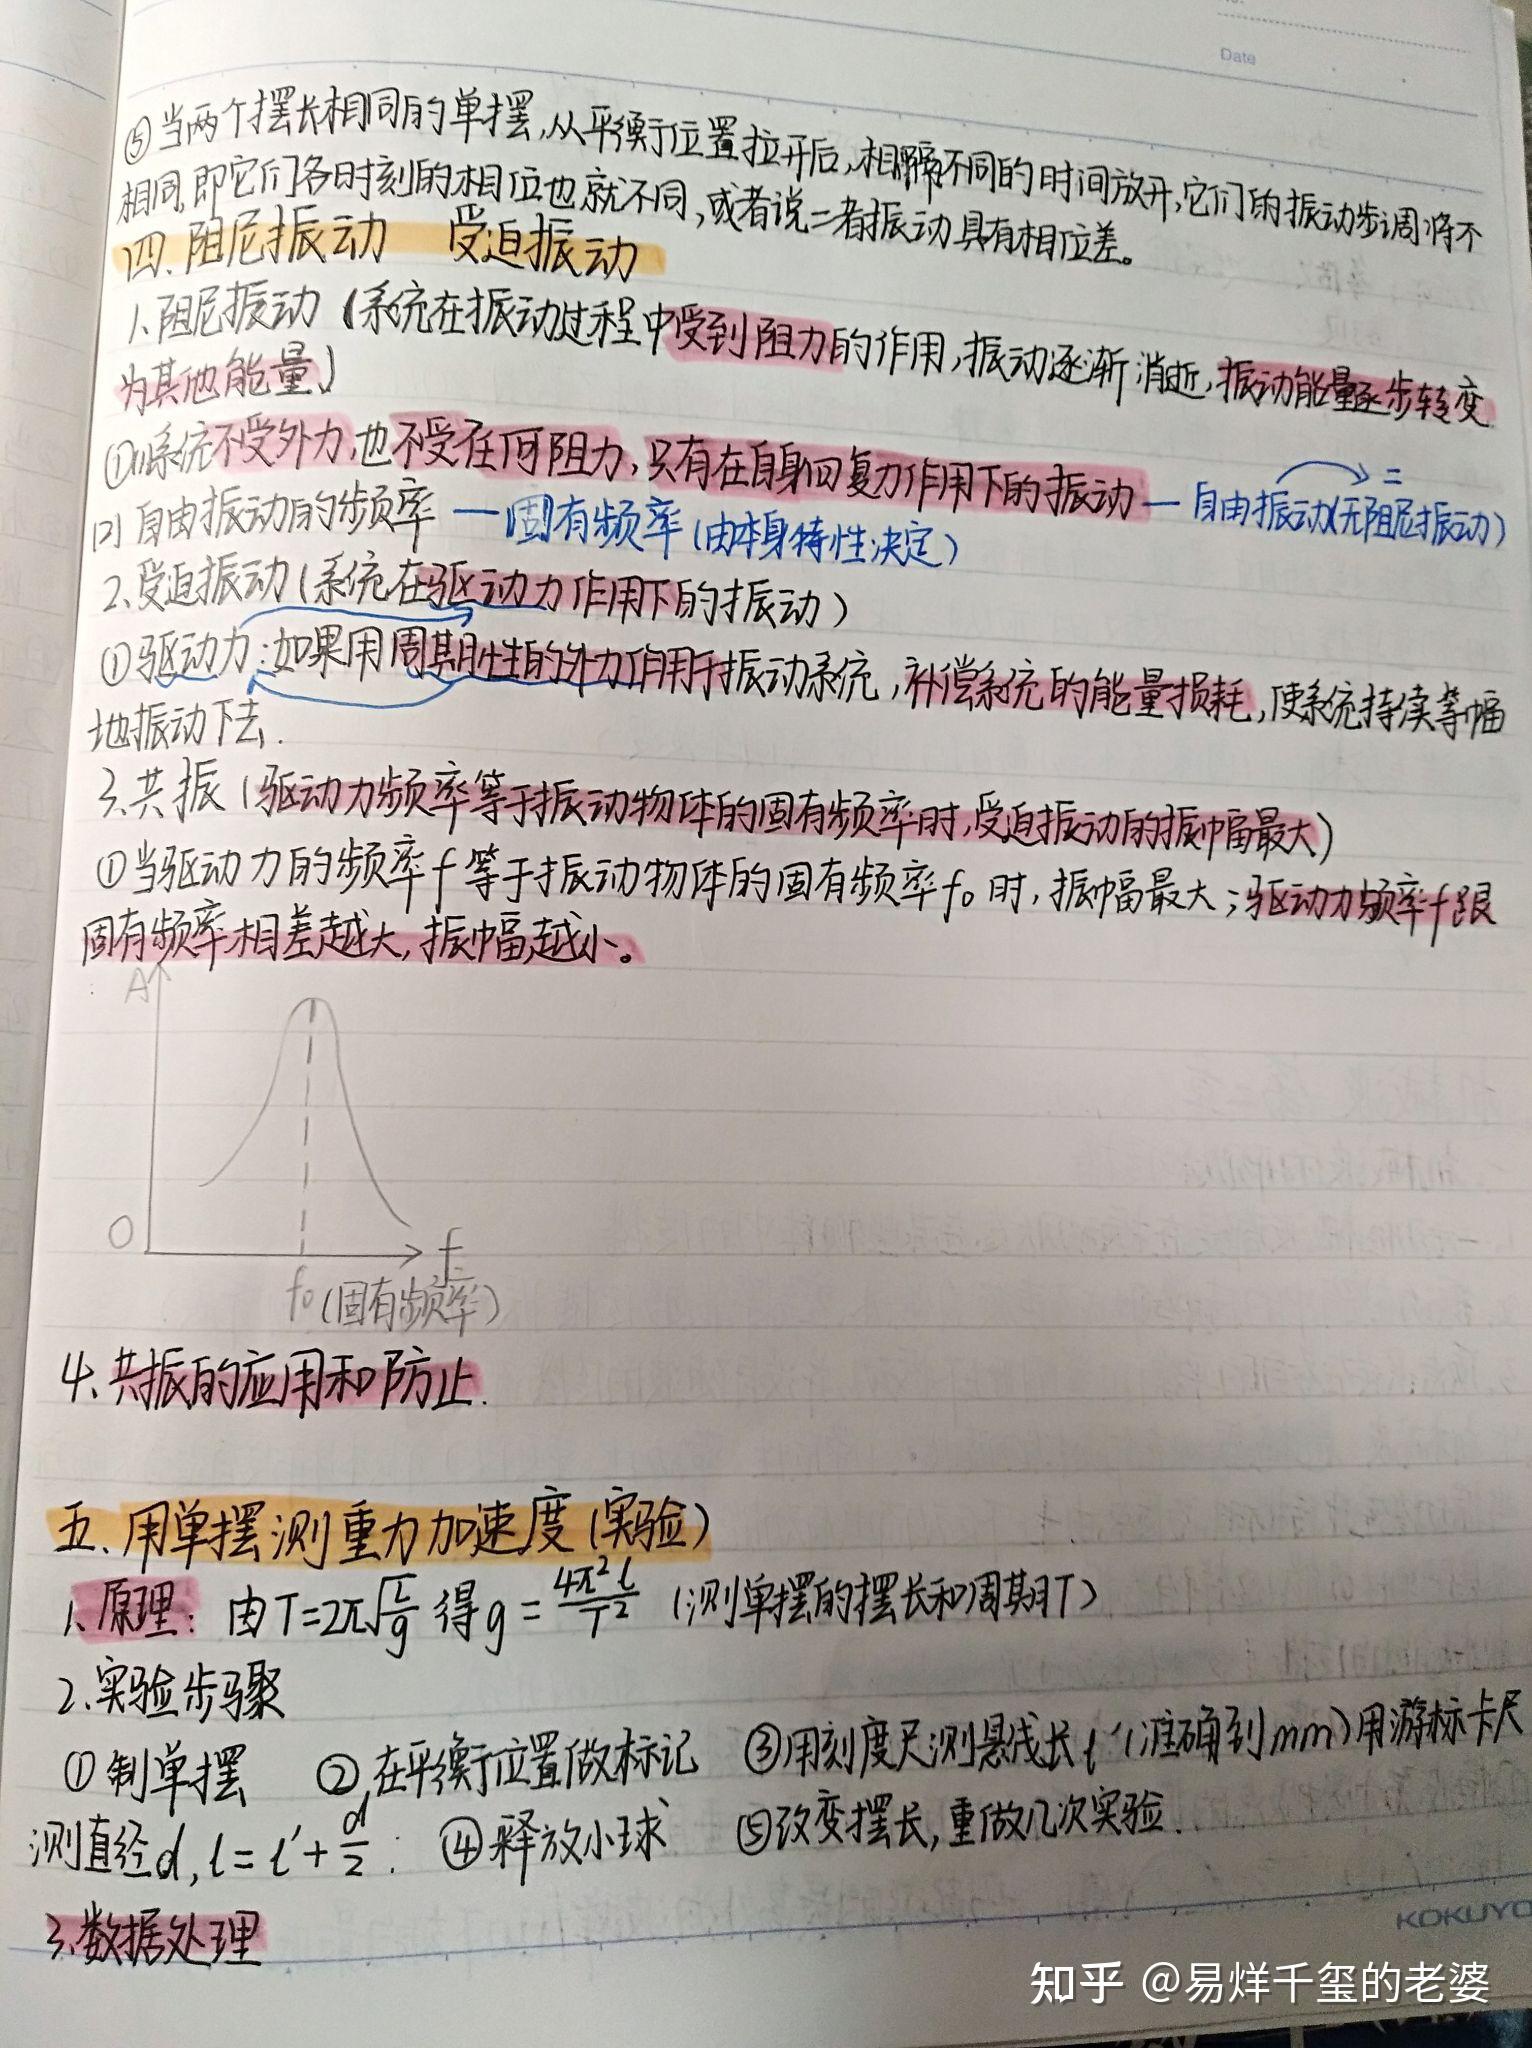 Date
⑤当两个摆长相同的单摆,从平衡位置拉开后,相隔不同的时间放开,它们的振动步调将不
相同,即它们各时刻的相位也就不同,或者说二者振动具有相位差。
四.阻尼振动 受迫振动
1.阻尼振动(系统在振动过程中受到阻力的作用,振动逐渐消逝,振动能量逐步转变
为其他能量)
①(1)系统不受外力,也不受任何阻力,只有在自身回复力作用下的振动—自由振动(无阻尼振动)
(2)自由振动的频率—固有频率(由本身特性决定)
2.受迫振动(系统在驱动力作用下的振动)
①驱动力:如果用周期性的外力作用于振动系统,补偿系统的能量损耗,使系统持续等幅
地振动下去.
3.共振(驱动力频率等于振动物体的固有频率时,受迫振动的振幅最大)
①当驱动力的频率f等于振动物体的固有频率f₀时,振幅最大;驱动力频率f跟
固有频率相差越大,振幅越小。
A
O
f
f₀(固有频率)
4.共振的应用和防止.
五.用单摆测重力加速度(实验)
1.原理:由T=2π√(L/g) 得g=4π²l/T² (测单摆的摆长和周期T)
2.实验步骤
①制单摆 ②在平衡位置做标记 ③用刻度尺测悬线长l′(准确到mm)用游标卡尺
测直径d,l=l′+d/2; ④释放小球 ⑤改变摆长,重做几次实验.
3.数据处理
KOKUYO
知乎 @易烊千玺的老婆